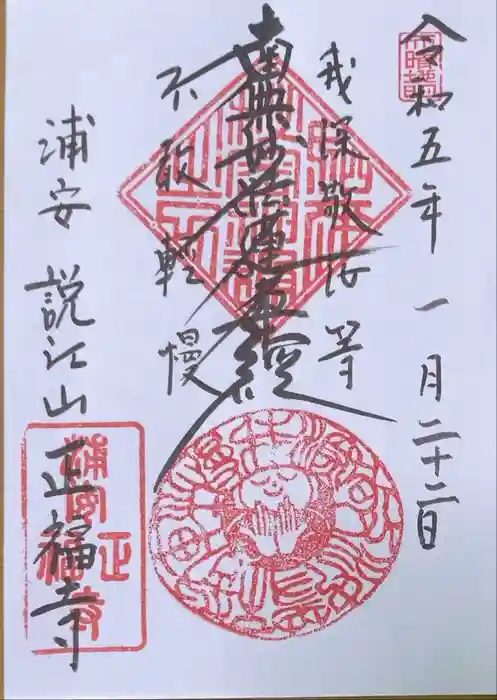 令和五年一月二十二日
我深敬汝等
南無妙法蓮華経
不敢軽慢
浦安 説江山 正福寺
浦安
正福寺